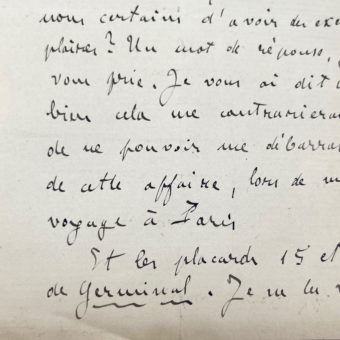 nous certains d'avoir des exe
plaires? Un mot de réponse,
vous prie. Je vous ai dit
bien cela me contrarierai
de ne pouvoir me débarra
de cette affaire, lors de m
voyage à Paris
Et les placards 15 et
de Germinal. Je n'ai lu